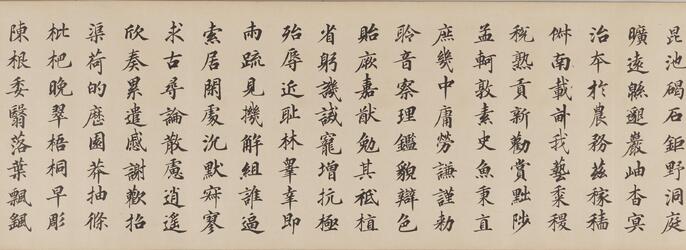 昆池碣石鉅野洞庭
曠遠緜邈巖岫杳冥
治夲於農務茲稼穡
俶南載畝我藝黍稷
稅熟貢新勸賞黜陟
孟軻敦素史魚秉直
庶幾中庸勞謙謹勅
聆音察理鑑貌辯色
貽厥嘉猷勉其祗植
省躬譏誡寵增抗極
殆辱近耻林皋幸即
兩疏見機解組誰逼
索居閑處沉默寂寥
求古尋論散慮逍遙
欣奏累遣慼謝歡招
渠荷的歷園莽抽條
枇杷晚翠梧桐早彫
陳根委翳落葉飄颻